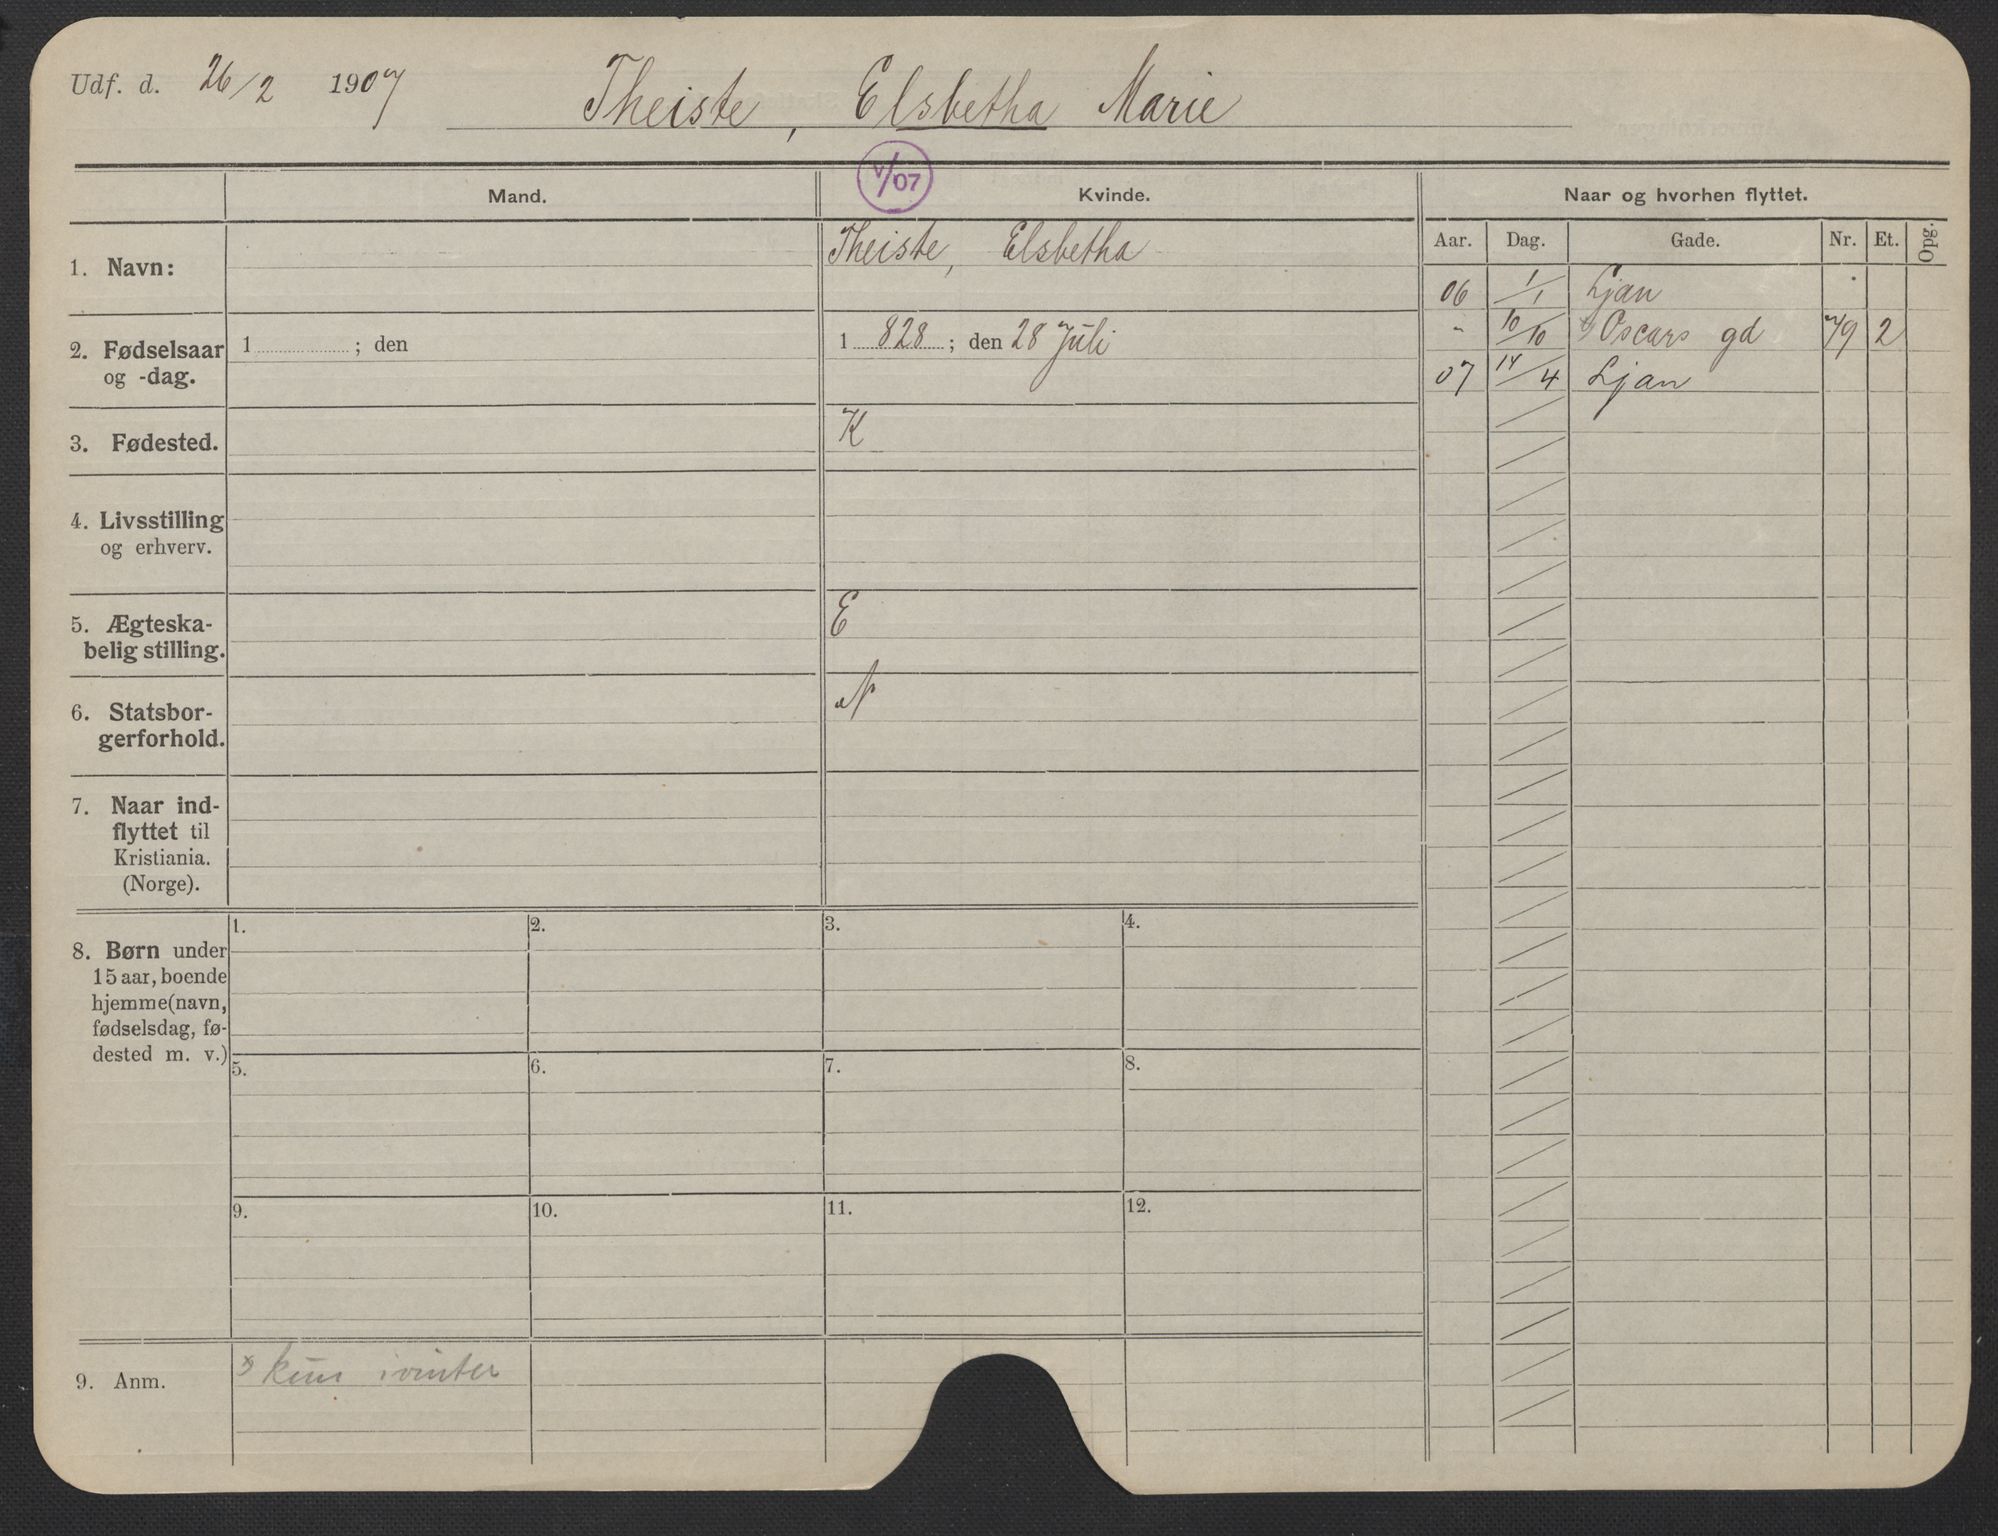 Udf. d. 26/2 1907 Theiste, Elsbetha Marie
V/07
Mand. Kvinde. Naar og hvorhen flyttet.
Aar. Dag. Gade. Nr. Et. Opg.
1. Navn: Theiste, Elsbetha
06 1/1 Ljan
" 10/10 x) Oscars gd 79 2
07 14/4 Ljan
2. Fødselsaar 1 ; den 1 828 ; den 28 Juli
og -dag.
3. Fødested. K
4. Livsstilling
og erhverv.
5. Ægteska-
belig stilling. E
6. Statsbor-
gerforhold. N
7. Naar ind-
flyttet til
Kristiania.
(Norge).
8. Børn under
15 aar, boende
hjemme (navn,
fødselsdag, fø-
dested m. v.)
1. 2. 3. 4.
5. 6. 7. 8.
9. 10. 11. 12.
9. Anm. x) kun ivinter